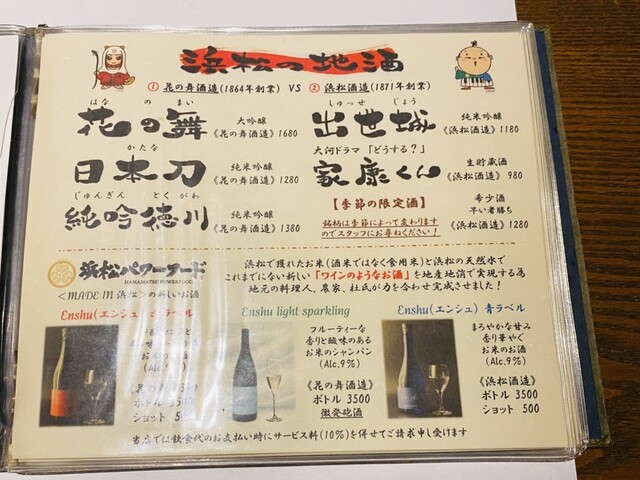 浜松の地酒
① 花の舞酒造(1864年創業) VS ② 浜松酒造(1871年創業)
はな の まい
花の舞
大吟醸
《花の舞酒造》1680
かたな
日本刀
純米吟醸
《花の舞酒造》1280
じゅんぎん とくがわ
純吟徳川
純米吟醸
《花の舞酒造》1380
しゅっせ じょう
出世城
純米吟醸
《浜松酒造》1180
大河ドラマ「どうする?」
家康くん
生貯蔵酒
《浜松酒造》980
【季節の限定酒】
銘柄は季節によって変わります
のでスタッフにお尋ねください!
希少酒
早い者勝ち
《浜松酒造》1280
浜松パワーフード
HAMAMATSU POWERFOOD
<MADE IN 浜松>の新しいお酒
浜松で獲れたお米(酒米ではなく食用米)と浜松の天然水で
これまでにない新しい「ワインのようなお酒」を地産地消で実現する為
地元の料理人、農家、杜氏が力を合わせ完成させました!
Enshu(エンシュ) ラベル
お米のお酒
(Alc.9%)
ボトル 3500
ショット 500
Enshu light sparkling
フルーティーな
香りと酸味のある
お米のシャンパン
(Alc.9%)
《花の舞酒造》
ボトル 3500
微発砲酒
Enshu(エンシュ) 青ラベル
まろやかな甘み
香り華やぐ
お米のお酒
(Alc.9%)
《浜松酒造》
ボトル 3500
ショット 500
当店では飲食代のお支払い時にサービス料(10%)を併せてご請求申し受けます